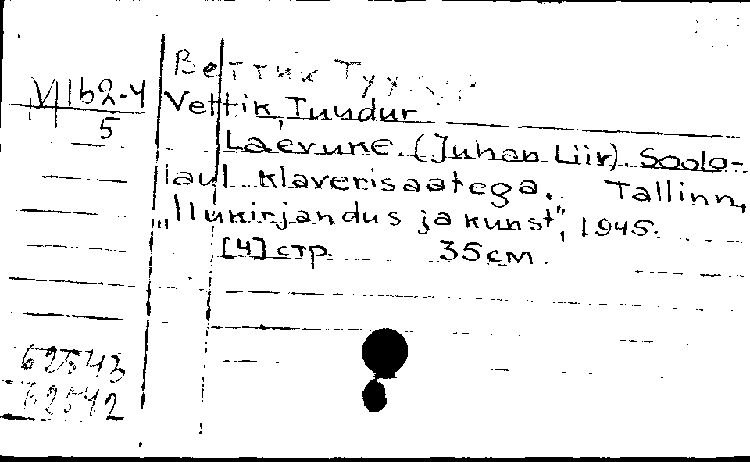 Веттик Туудур
VI 162-4
5
Vettik, Tuudur
Laevuke. (Juhan Liiv). Soolo-
laul klaverisaatega. Tallinn,
„Ilukirjandus ja kunst", 1945.
[4] стр. 35 см.
62543
62542